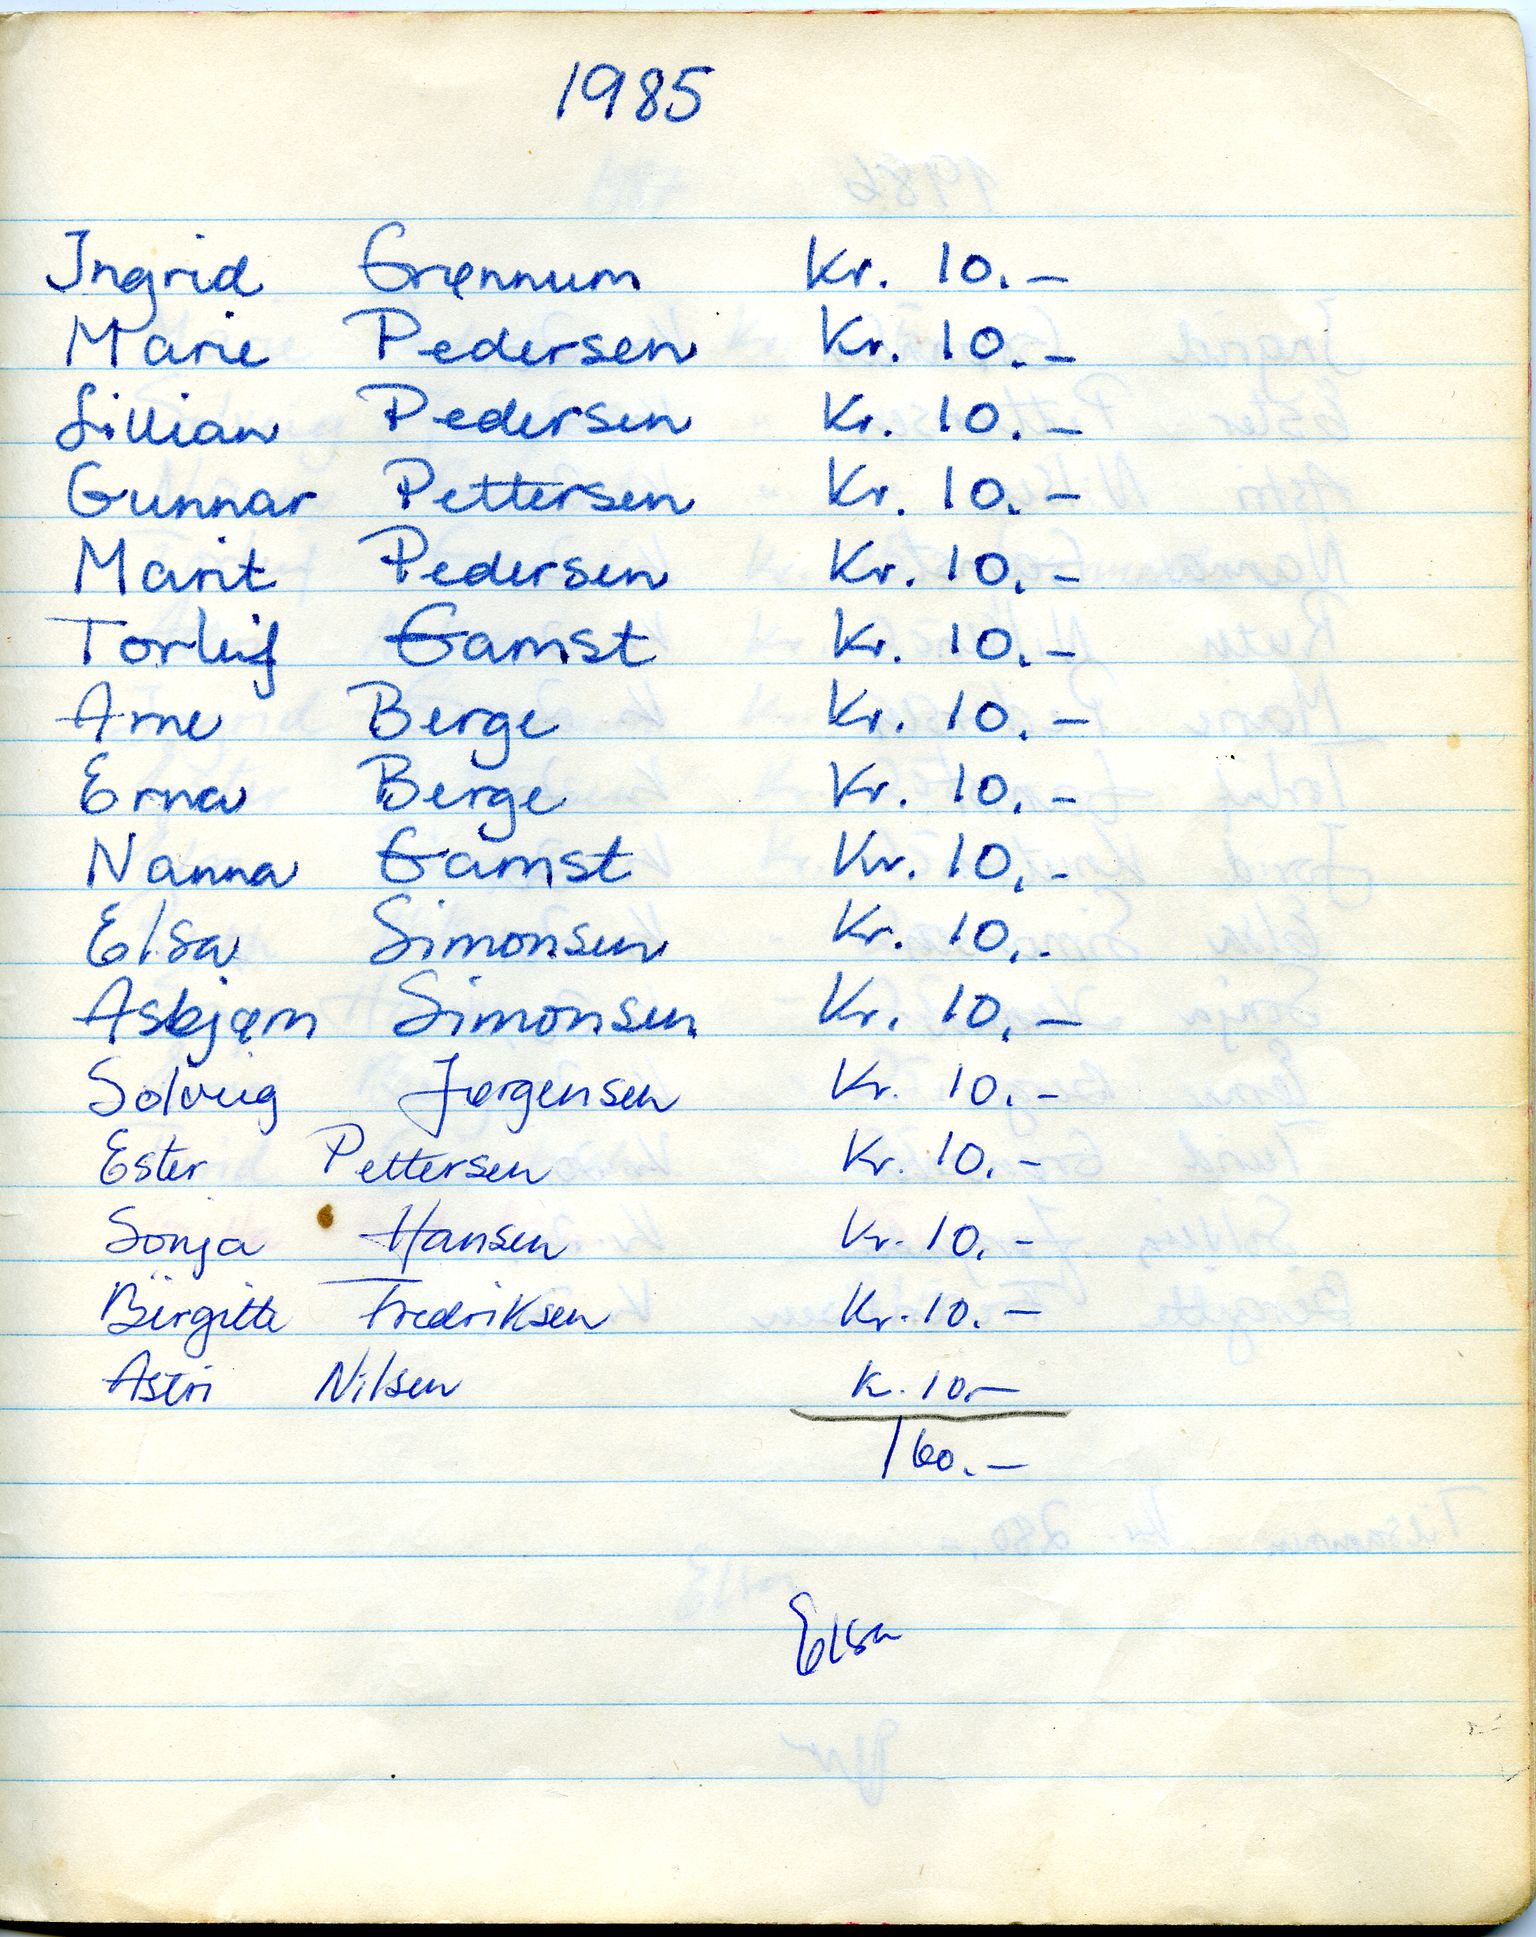 1985
Ingrid Grønnum Kr. 10.-
Marie Pedersen Kr. 10.-
Lillian Pedersen Kr. 10.-
Gunnar Pettersen Kr. 10.-
Marit Pedersen Kr. 10.-
Torleif Gamst Kr. 10.-
Arne Berge Kr. 10.-
Erna Berge Kr. 10.-
Nanna Gamst Kr. 10.-
Elsa Simonsen Kr. 10.-
Asbjørn Simonsen Kr. 10.-
Solveig Jørgensen Kr. 10.-
Ester Pettersen Kr. 10.-
Sonja Hansen Kr. 10.-
Birgitte Fredriksen Kr. 10.-
Astri Nilsen K. 10.-
160.-
Elsa